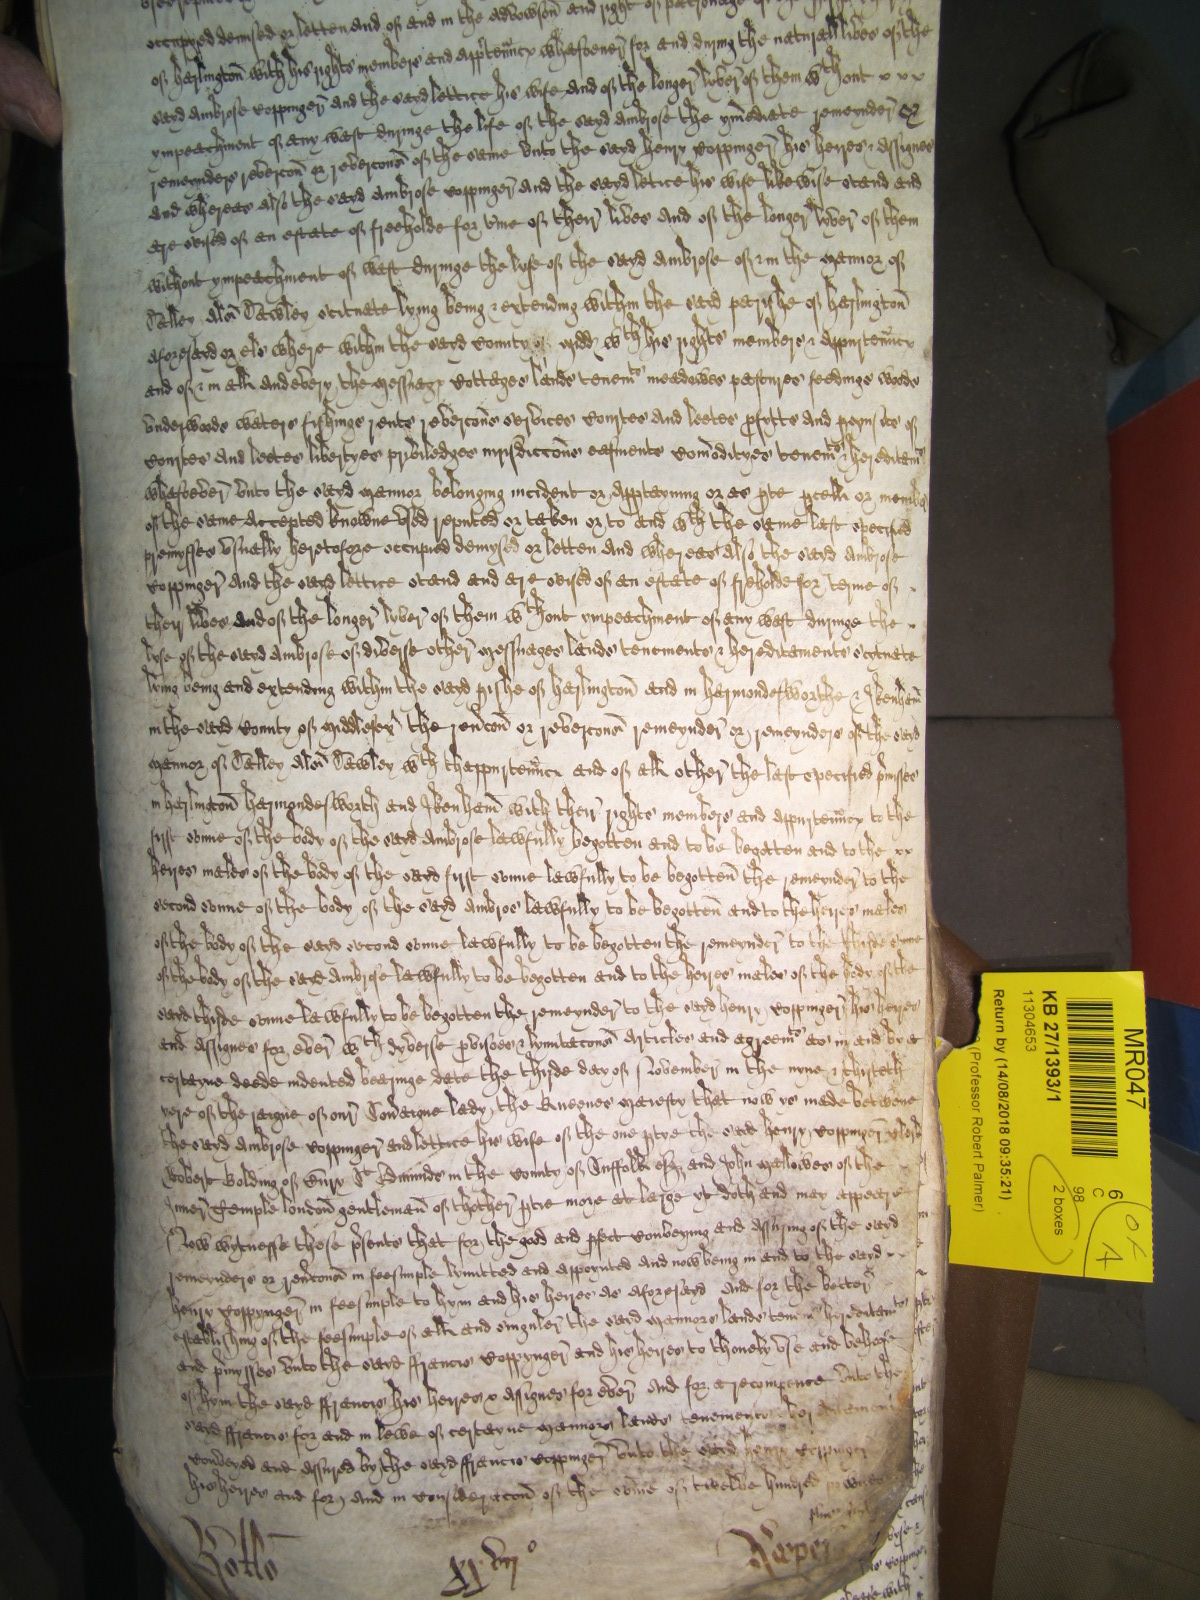 occupyed demised or letten and of and in the advowson and right of patronage of the
of harlington with his rights members and appurtenncs whatsoever for and during the naturall lives of the
sayd Ambrose Coppinger and the sayd lettice his wife and of the longer lyver of them wthout x x x
ympeachment of any wast duringe the life of the sayd Ambrose the ymediate remeynder or
remeynders revercon or revercons of the same unto the sayd henry Coppinger his heires & assignes
And whereas also the sayd Ambrose Coppinger and the sayd letice his wife likewise stand and
are seised of an estate of freeholde for tme of their lives and of the longer lyver of them
without ympeachment of wast duringe the lyfe of the sayd Ambrose of & in the mannor of
Dalley als Dawley scituate lying being & extending within the said parishe of harlington
aforesayd or els where within the sayd County of Midd wth his rights members & appurtenncs
and of & in all and every the messuags Cottages lands tenemts meadowes pastures feedings woods
underwoods waters fishings rents revercons services Courtes and leetes profytts and perquisites of
Courtes and leetes libertyes priviledges jurisdiccons easments Comodityes tenemts & hereditamts
whatsoever unto the sayd mannor belonging incident or apptayning or as pte pcell or member
of the same accepted knowne used reputed or taken or to and wth the same last specified
premysses usually heretofore occupied demysed or letten And whereas also the sayd Ambrose
Coppinger And the sayd lettice stand and are seised of an estate of freholde for terme of
their lives and of the longer lyver of them wthout ympeachment of any wast duringe the
lyfe of the sayd Ambrose of diverse other messuages lands tenements & hereditaments scytuate
lying being and extending within the sayd pishe of harlington and in harmondesworthe & Ikenham
in the sayd County of Middlesex the rencon or revercon remeynder or remeynders of the sayd
mannor of Dalley als Dawley wth thappurtenncs and of all other the last specified pmisses
in harlington harmondesworth and Ikenham with their rights members and appurtenncs to the
first sonne of the body of the sayd Ambrose lawfully begotten and to be begotten and to the x x
heires males of the body of the sayd first sonne lawfully to be begotten the remeynder to the
second sonne of the body of the sayd Ambros lawfully to be begotten and to the heires males
of the body of the sayd second sonne lawfully to be begotten the remeynder to the thirde sonne
of the body of the sayd Ambrose lawfully to be begotten and to the heires males of the body of the
sayd thirde sonne lawfully to be begotten the remeynder to the sayd henry Coppinger his heires
and assignes for ever wth dyverse provisoes & lymitacons Articles and agreemts as in and by a
certayne deede indented bearinge date the thirde day of November in the nyne & thirteth
yere of the raigne of our Soveraigne lady the Queenes Majesty that now ys made betwene
the sayd Ambrose Coppinger and lettice his wife of the one ptye the said henry Coppinger
Robert Golding of Bury St Edmunds in the County of Suffolk esqr and John Mallowes of the
Inner Temple london gentleman of thother ptie more at large yt doth and may appeare
Now wytnesse these psents that for the good and pfect Conveying and assuring of the sayd
remeynders or rencons in feesimple lymitted and appoynted and now being in and to the sayd
henry Coppynger in feesimple to hym and his heires as aforesayd And for the better
establishing of the feesimple of all and singuler the sayd mannors lands tenemts hereditamts
and pmysses unto the sayd ffrancis Coppynger and his heires to thonely use and behofe
of hym the sayd ffrancis his heires & assignes for ever And for a recompence unto the
sayd ffrancis for and in lewe of certayne mannors lands tenements hereditaments
Conveyed and assured by the sayd ffrancis Coppinger unto the sayd henry Coppinger
his heires and for And in Consideracon of the some of twelve hundred pownds
Rotlo
xxviio
MR047
KB 27/1393/1
11304653
Return by (14/08/2018 09:35:21)
(Professor Robert Palmer)
6
C
98
2 boxes
of
4